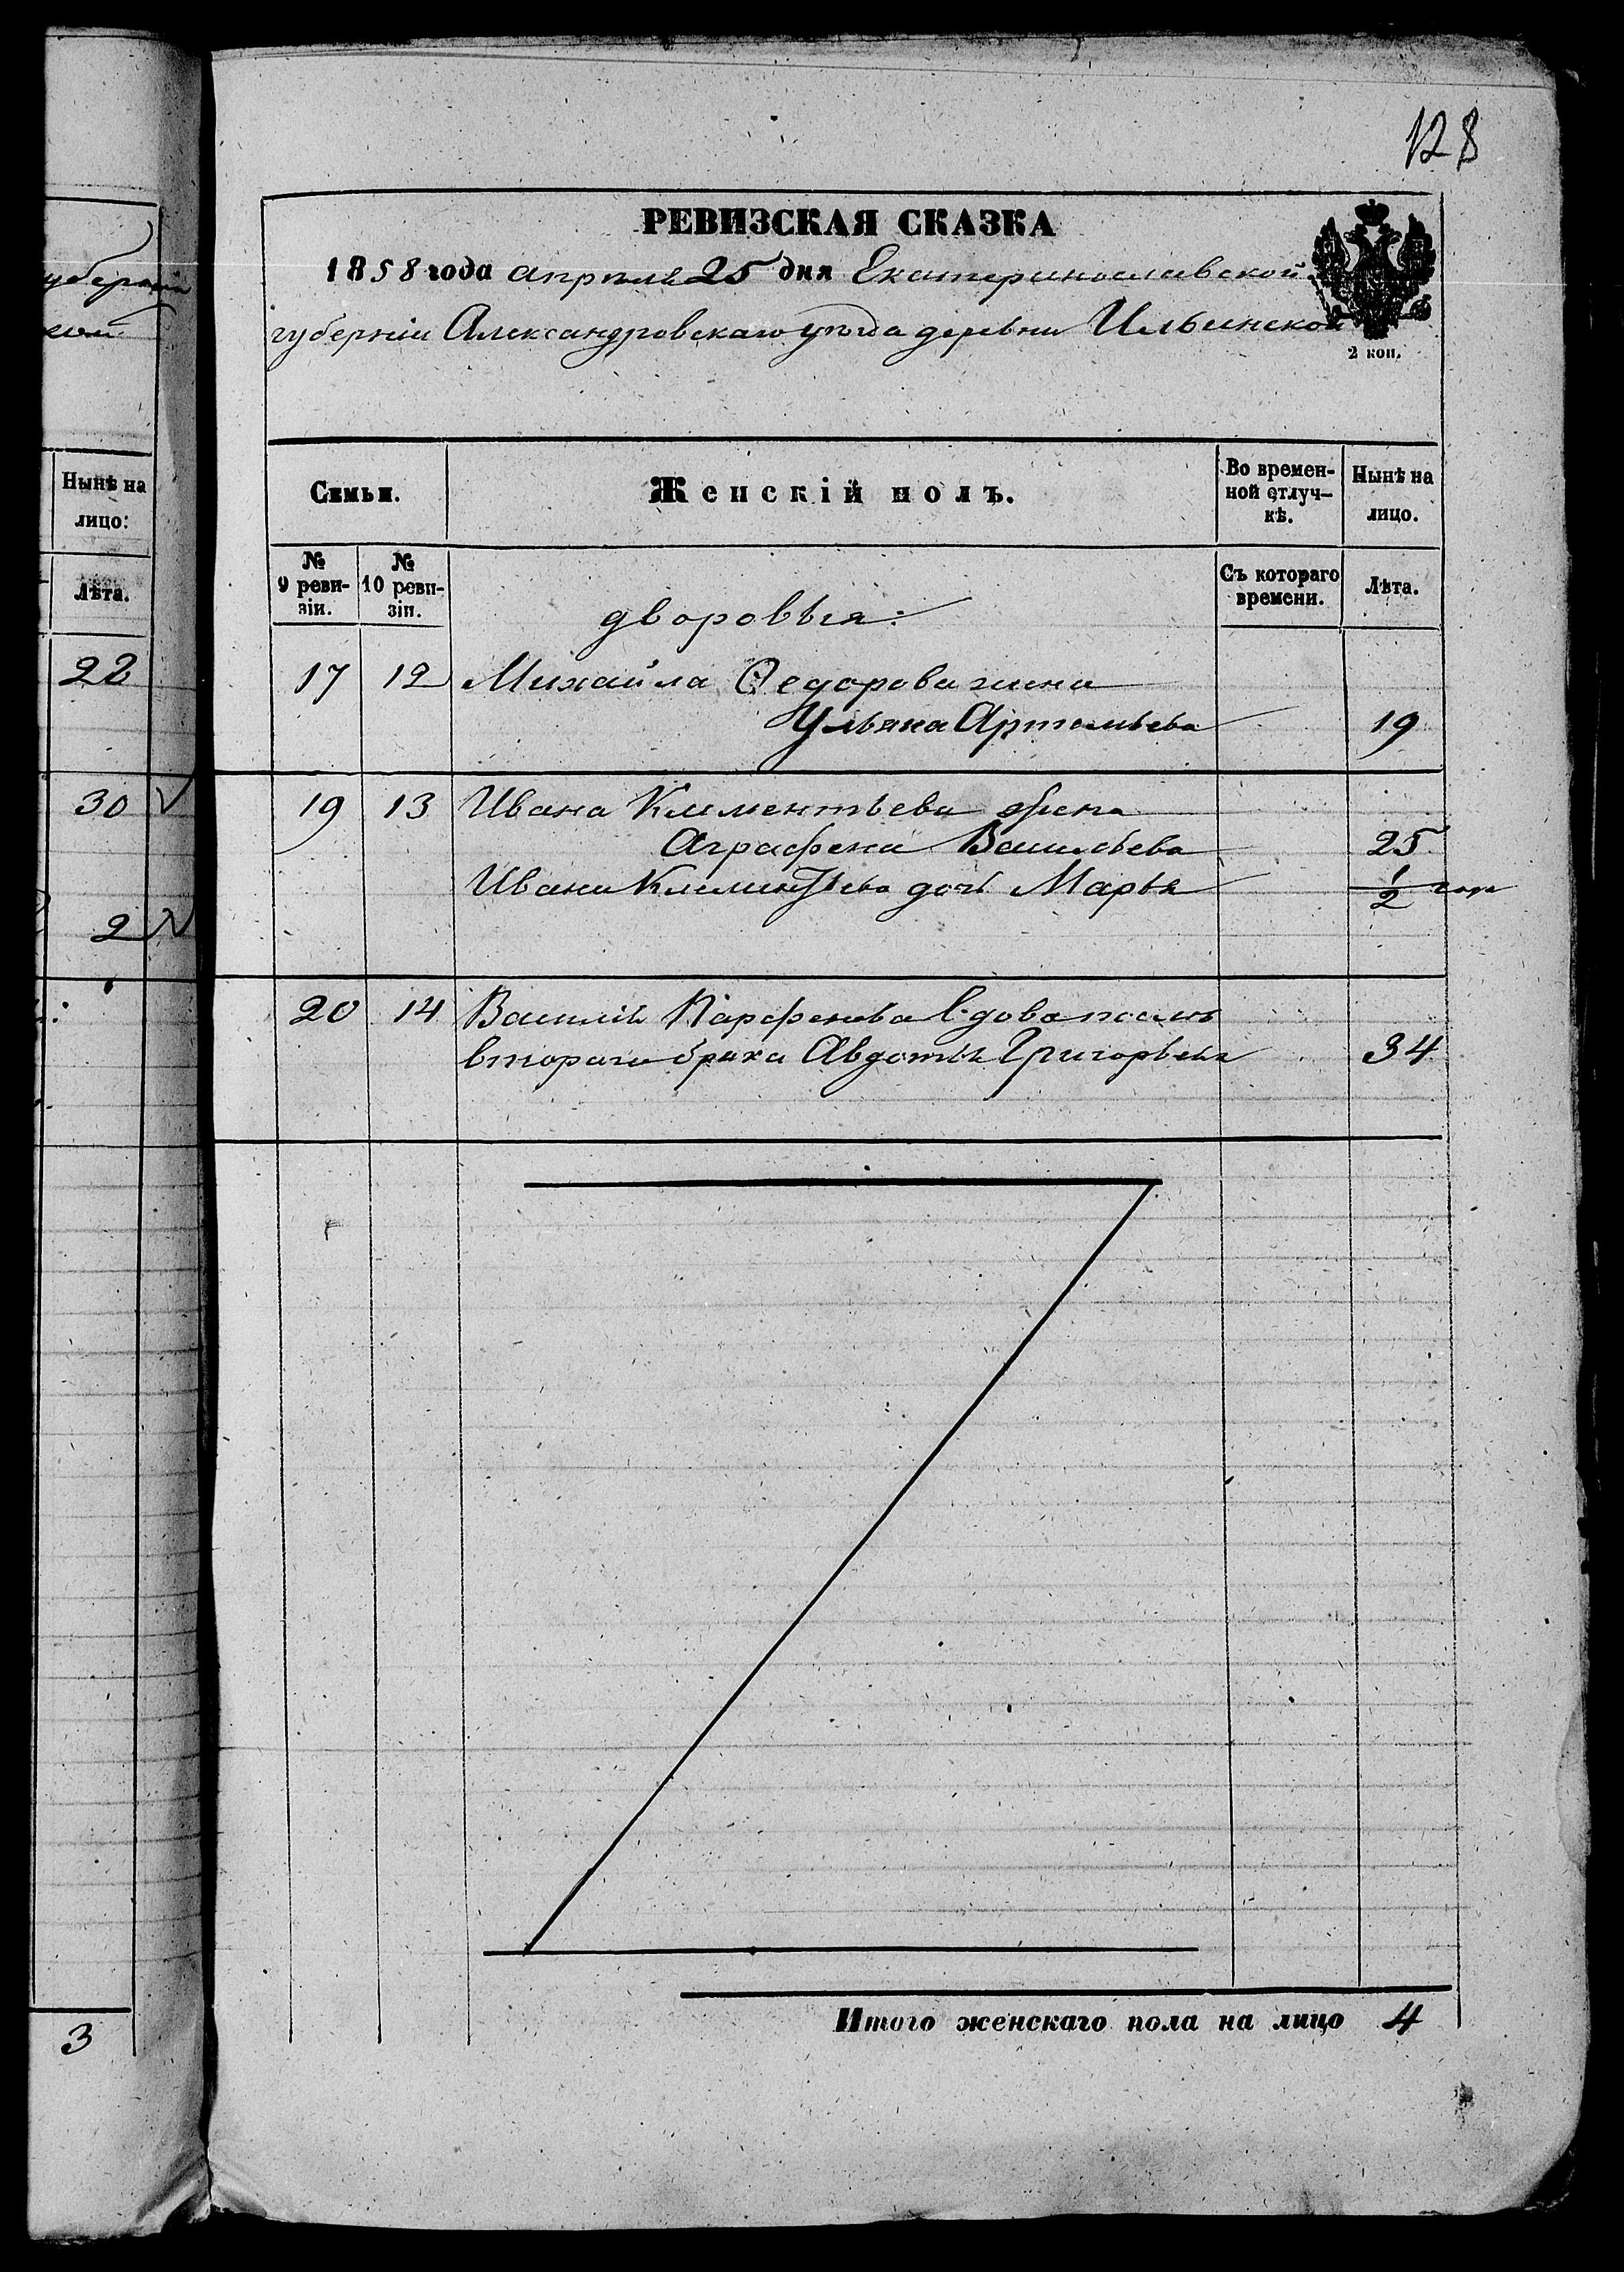 уберніи
Нынѣ на
лицо:
Лѣта.
22
30
2
3
128
РЕВИЗСКАЯ СКАЗКА
1858 года апрѣля 25 дня Екатеринославской
губерніи Александровскаго уѣзда деревни Ильинской
2 коп.
Семьи.
Женскій полъ.
Во времен-
ной отлуч-
кѣ.
Нынѣ на
лицо.
№
9 реви-
зіи.
№
10 реви-
зіи.
Съ котораго
времени.
Лѣта.
дворовыя:
17 12 Михайла Ѳедорова жена
Ульяна Артемьева 19
19 13 Ивана Климентьева жена
Аграфена Васильева 25
Ивана Климентьева дочь Марья 1/2 года
20 14 Василія Парфенова вдова
втораго брака Авдотья Григорьева 34
Итого женскаго пола на лицо 4